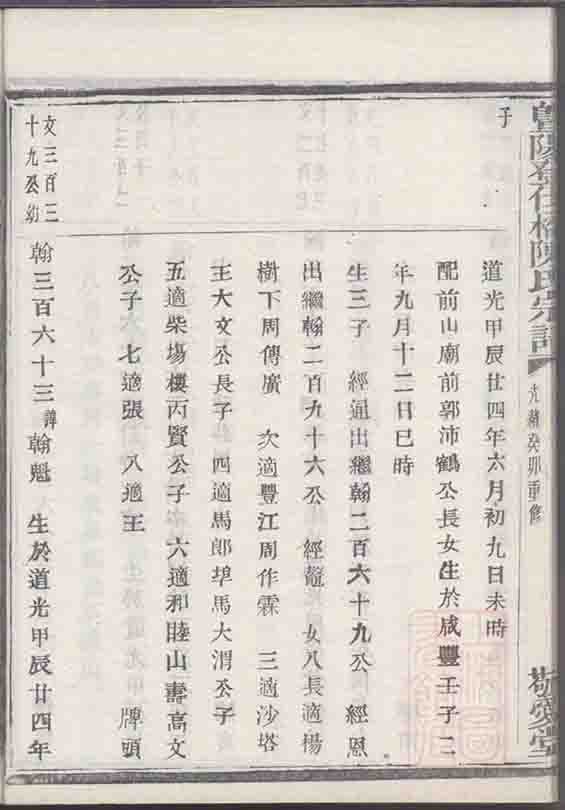 暨陽 陳氏宗譜
光緒癸卯重修
敬愛堂
子
道光甲辰廿四年六月初九日未時
配前山廟前郭沛鶴公長女生於咸豐壬子二
年九月十二日巳時
生三子 經通出繼翰二百六十九公 經恩
出繼翰二百九十六公 經鼇 女八長適楊
樹下周傳廣 次適豐江周作霖 三適沙塔
王大文公長子 四適馬郎 馬大渭公子
五適柴塲樓丙賢公子 六適和睦山壽高文
公子 七適張 八適王 牌頭
文三百三
十九公幼
翰三百六十三諱翰魁 生於道光甲辰廿四年